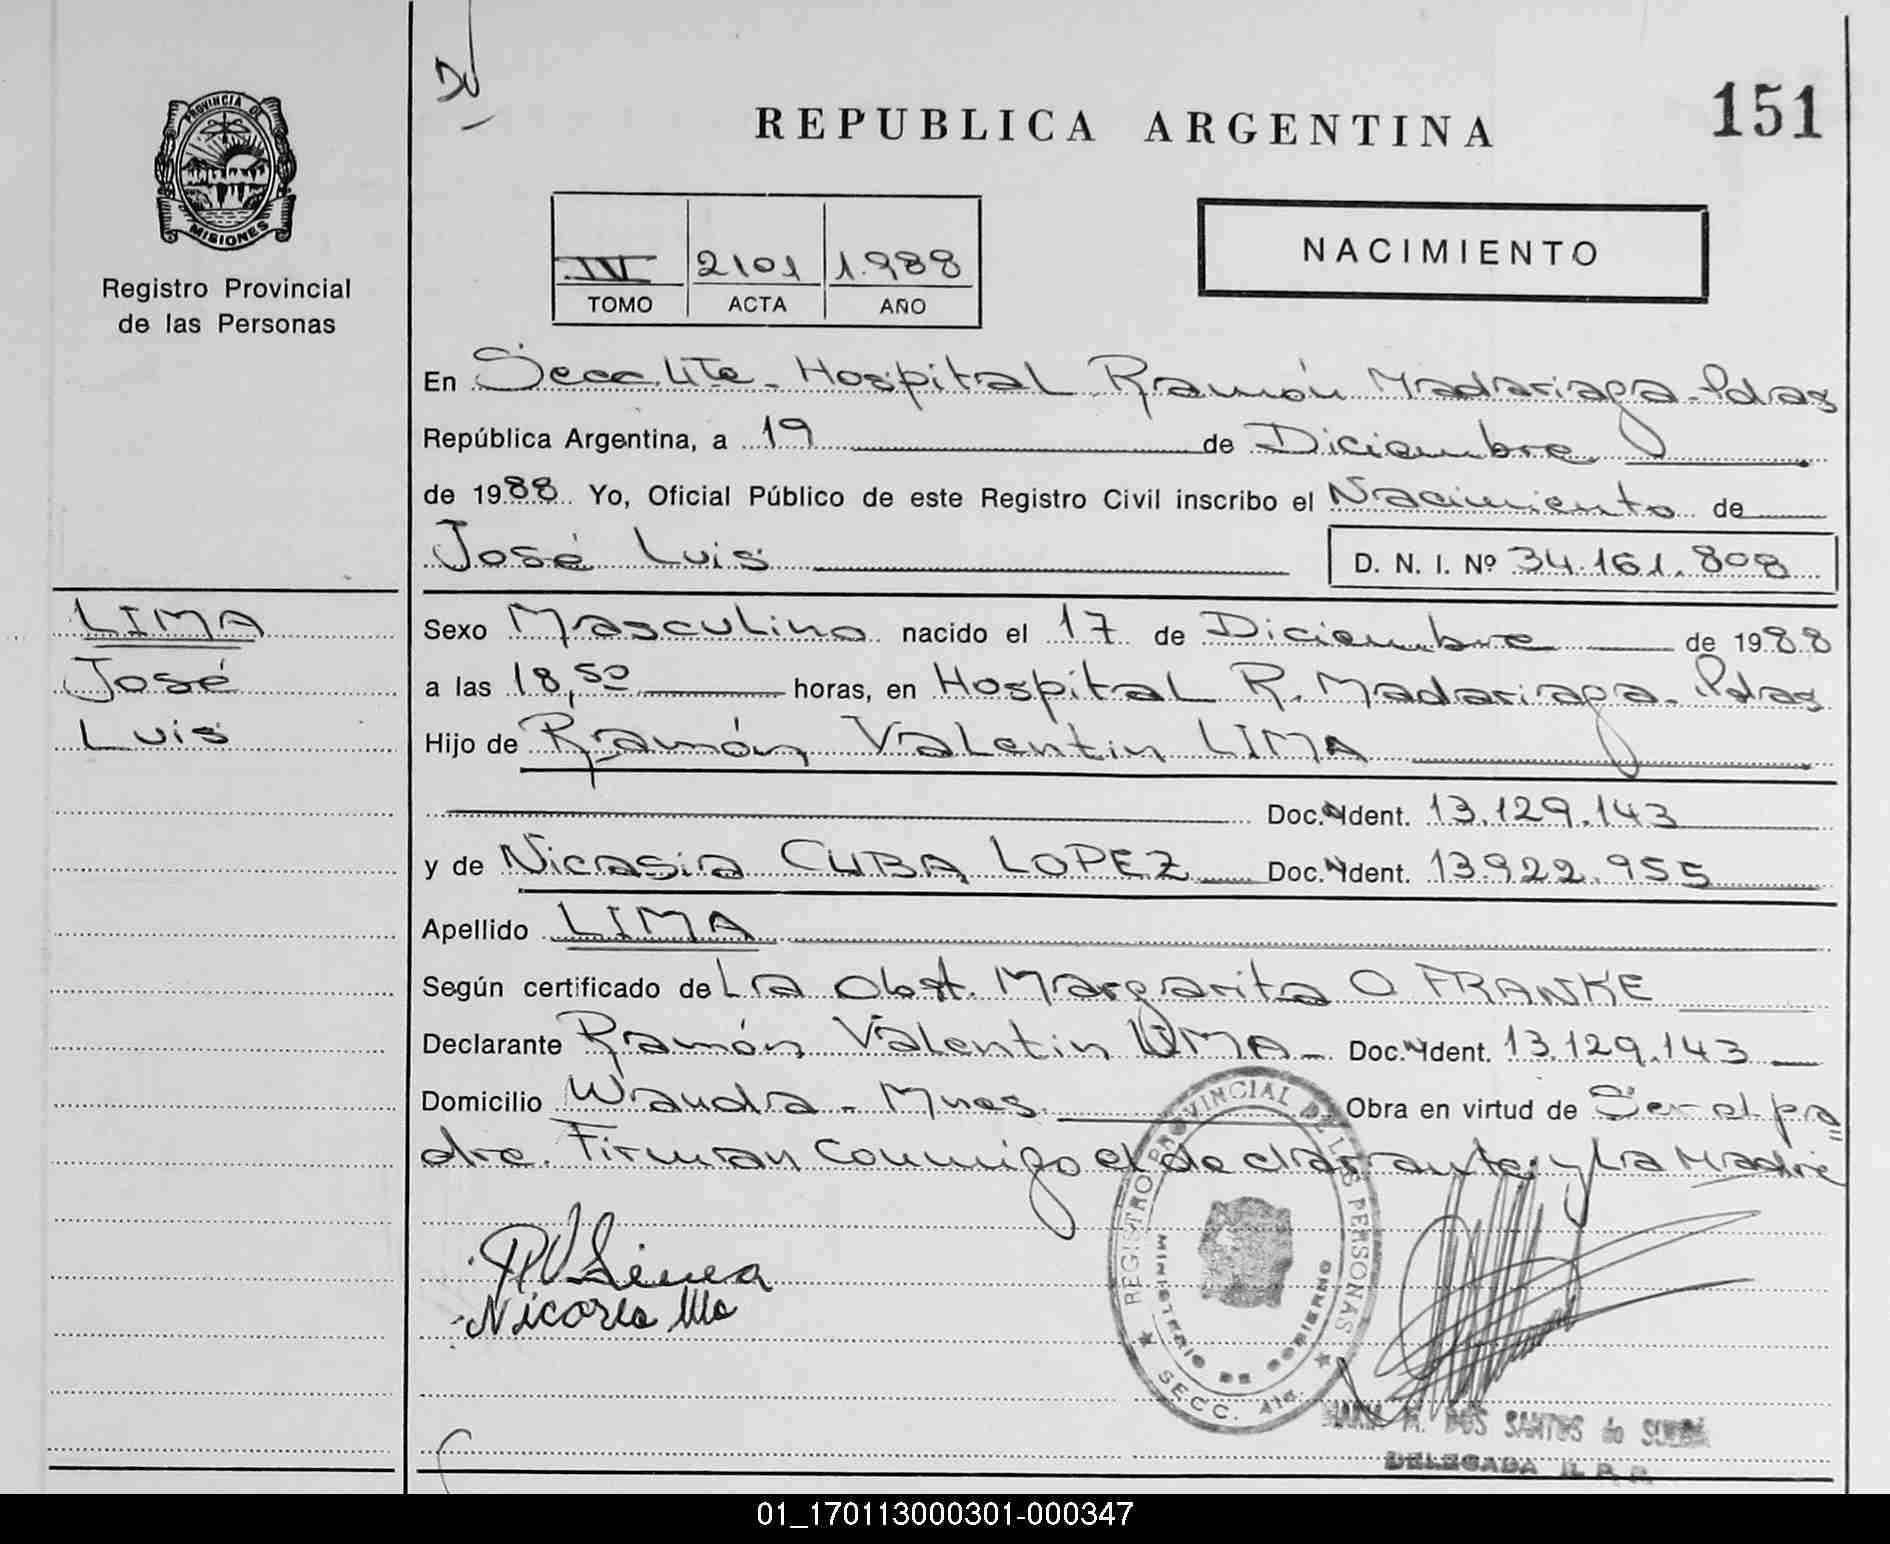 PROVINCIA DE
MISIONES
Registro Provincial
de las Personas
LIMA
José
Luis
REPUBLICA ARGENTINA
151
IV 2101 1.988
TOMO ACTA AÑO
NACIMIENTO
En Secc. 4ta - Hospital Ramón Madariaga - Pdas
República Argentina, a 19 de Diciembre
de 1988 Yo, Oficial Público de este Registro Civil inscribo el Nacimiento de
José Luis D. N. I. Nº 34.161.808
Sexo Masculino nacido el 17 de Diciembre de 1988
a las 18,50 horas, en Hospital R. Madariaga - Pdas
Hijo de Ramón Valentin LIMA
Doc. Ident. 13.129.143
y de Nicasia CUBA LOPEZ Doc. Ident. 13.922.955
Apellido LIMA
Según certificado de La Obst. Margarita O FRANKE
Declarante Ramón Valentin LIMA - Doc. Ident. 13.129.143
Domicilio Wanda - Mnes. Obra en virtud de Ser el pa"
dre. Firman conmigo el declarante y La Madre
RV Lima
REGISTRO PROVINCIAL DE LAS PERSONAS
MINISTERIO DE GOBIERNO
SECC. 4ta.
MARIA M. DOS SANTOS de
DELEGADA R. P. P.
01_170113000301-000347